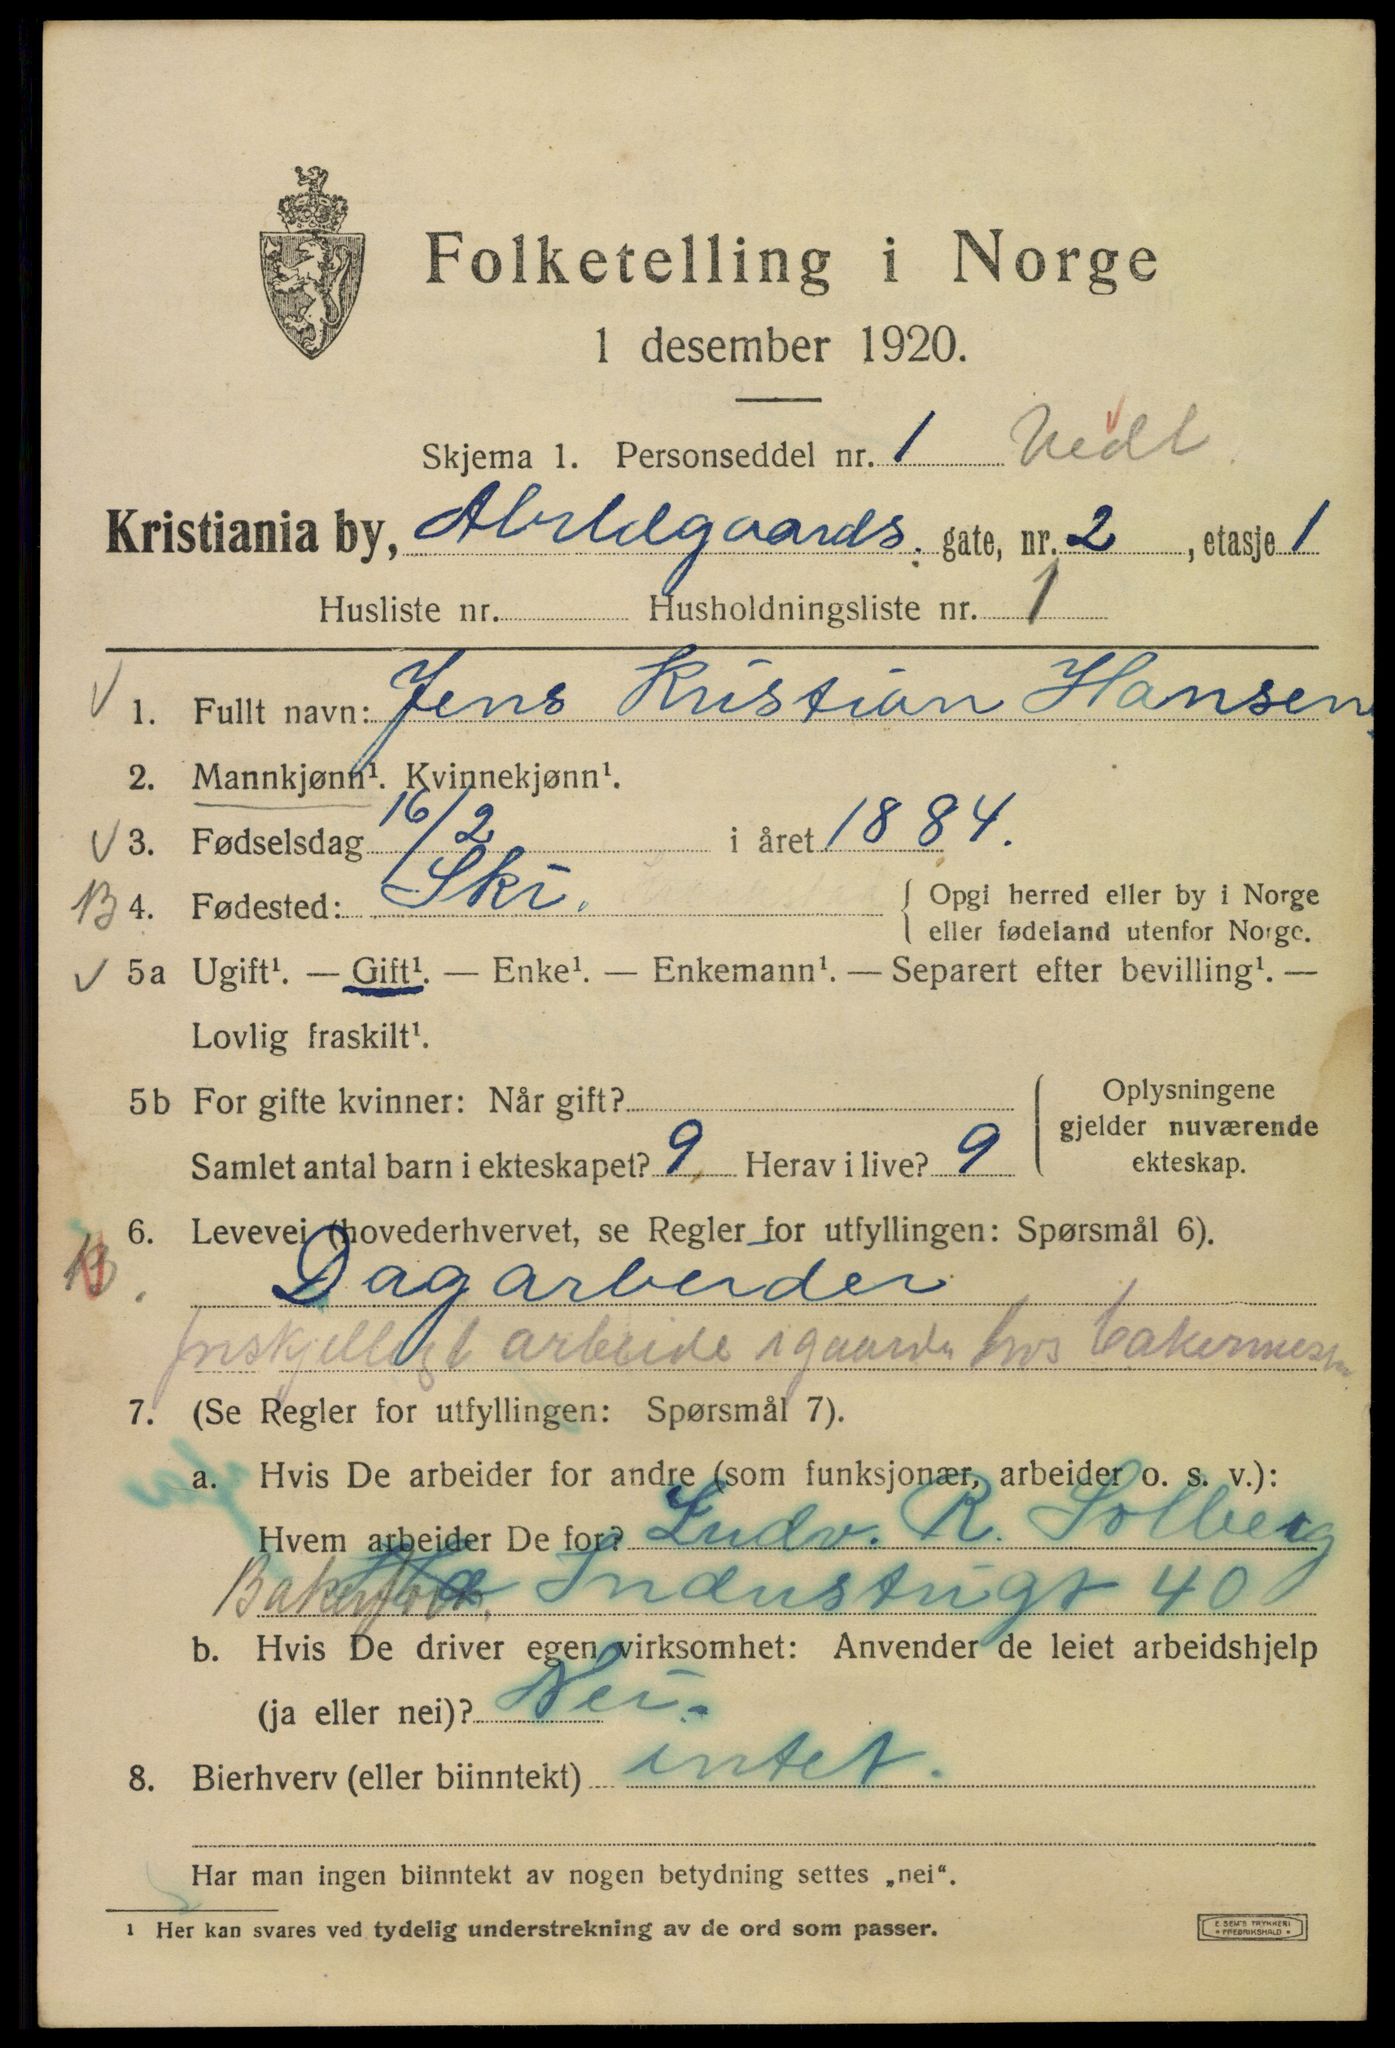 Folketelling i Norge
1 desember 1920.
Skjema 1. Personseddel nr. 1 Vedl
Kristiania by, Abildgaards. gate, nr. 2, etasje 1
Husliste nr. Husholdningsliste nr. 1
1. Fullt navn: Jens Kristian Hansen
2. Mannkjønn¹. Kvinnekjønn¹.
3. Fødselsdag 16/2 i året 1884.
B 4. Fødested: Ski. { Opgi herred eller by i Norge
eller fødeland utenfor Norge.
5a Ugift¹. — Gift¹. — Enke¹. — Enkemann¹. — Separert efter bevilling¹. —
Lovlig fraskilt¹.
5b For gifte kvinner: Når gift?
Samlet antal barn i ekteskapet? 9 Herav i live? 9
{ Oplysningene
gjelder nuværende
ekteskap.
6. Levevei (hovederhvervet, se Regler for utfyllingen: Spørsmål 6).
B. Dagarbeider
forskjelligt arbeide i gaarden hos bakermester
7. (Se Regler for utfyllingen: Spørsmål 7).
a. Hvis De arbeider for andre (som funksjonær, arbeider o. s. v.):
Hvem arbeider De for? Ludv. R. Solberg
Industrigt 40
b. Hvis De driver egen virksomhet: Anvender de leiet arbeidshjelp
(ja eller nei)? Nei.
8. Bierhverv (eller biinntekt) intet.
Har man ingen biinntekt av nogen betydning settes „nei“.
¹ Her kan svares ved tydelig understrekning av de ord som passer.
E. SEM'S TRYKKERI
* FREDRIKSHALD *